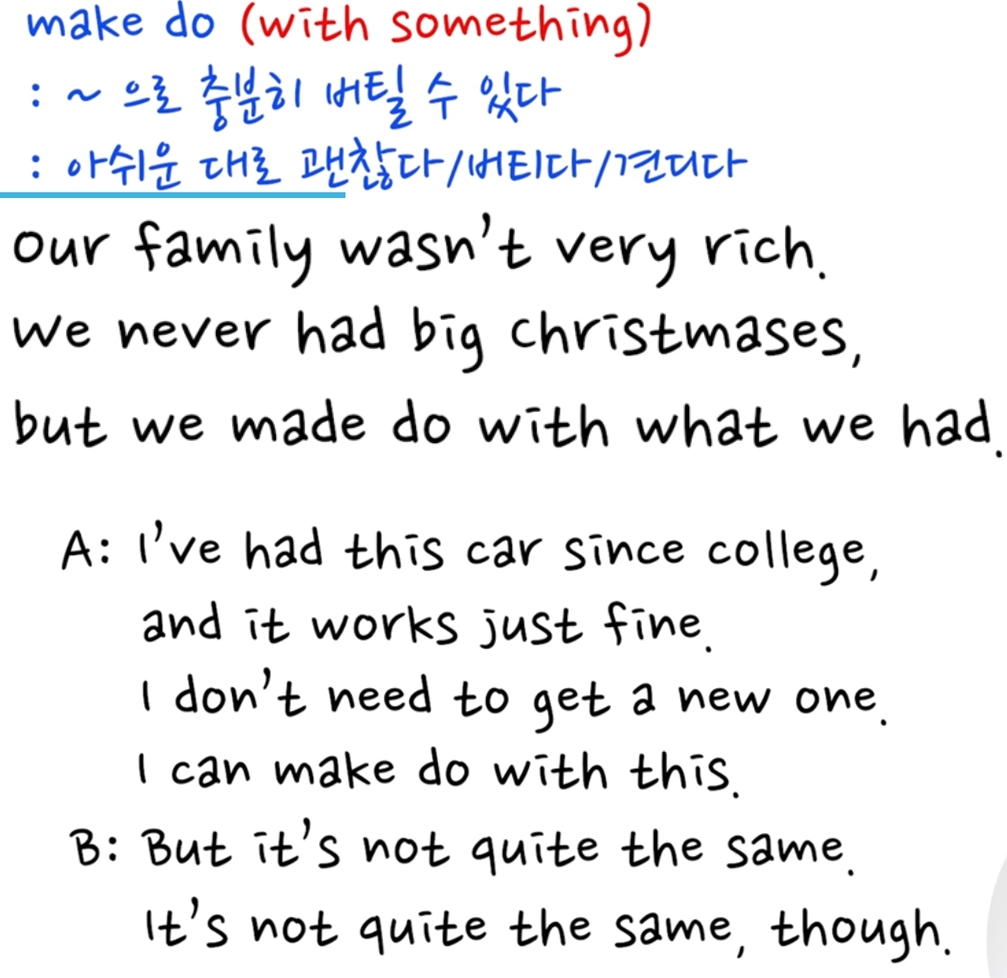 make do (with something)
: ~ 으로 충분히 버틸 수 있다
: 아쉬운 대로 괜찮다/버티다/견디다
our family wasn't very rich.
We never had big christmases,
but we made do with what we had.
A: I've had this car since college,
and it works just fine.
I don't need to get a new one.
I can make do with this.
B: But it's not quite the same.
It's not quite the same, though.